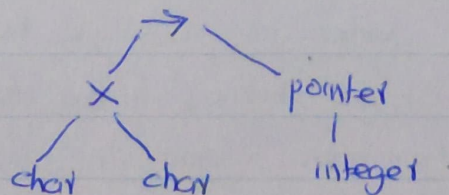 →
× pointer
char char integer